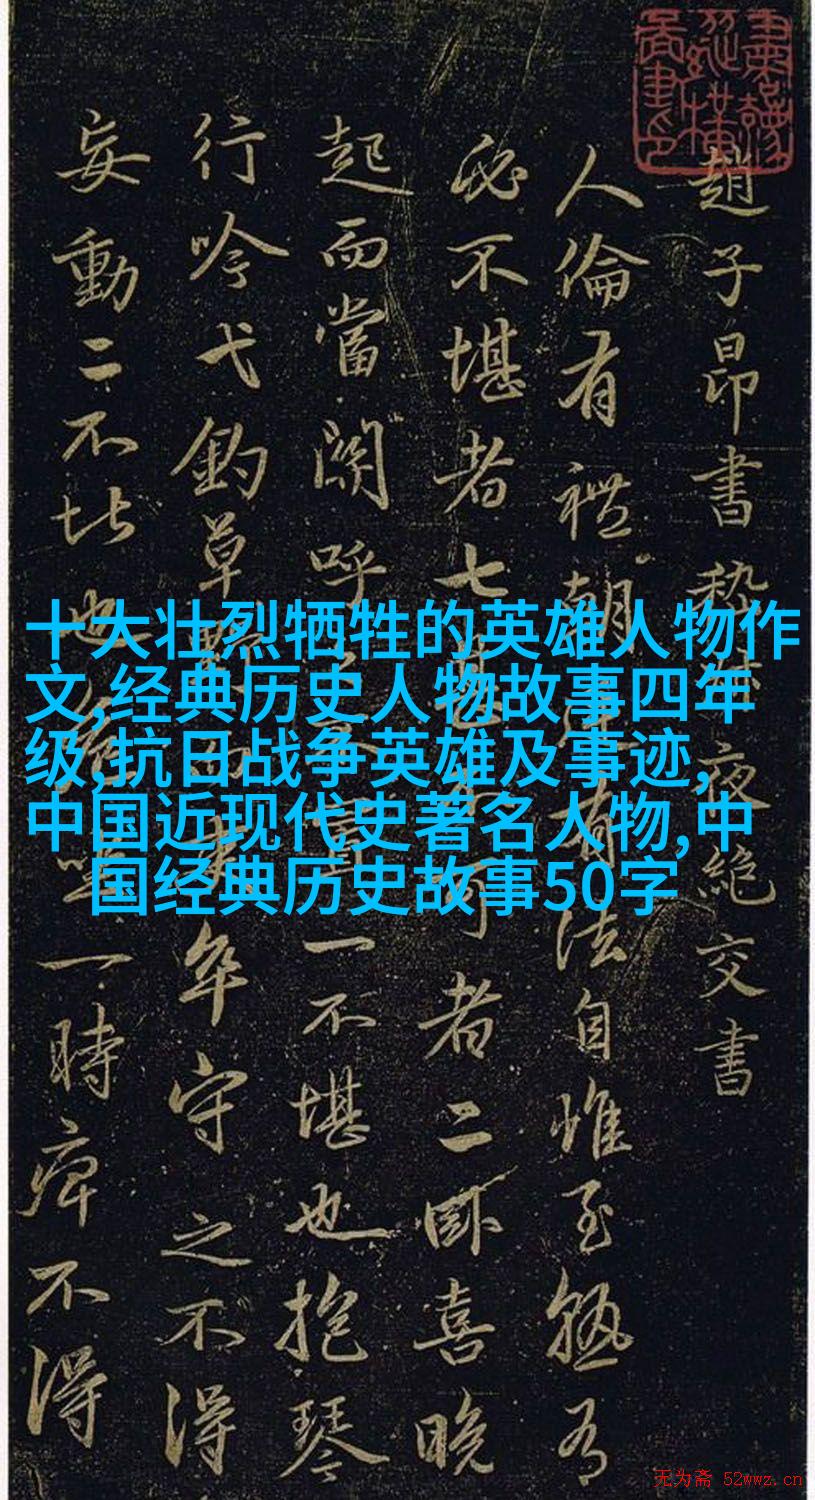 趙子昂書嵇叔夜絶交書
人倫有禮朝有法自惟至熟有
必不堪者七甚可者二臥喜晚
起而當關呼置一不堪也抱琴
行吟弋釣草野卒守之不得
妄動二不堪也坐一時痺不得
十大壮烈牺牲的英雄人物作
文,经典历史人物故事四年
级,抗日战争英雄及事迹,
中国近现代史著名人物,中
国经典历史故事50字
无为斋 52wwz.cn